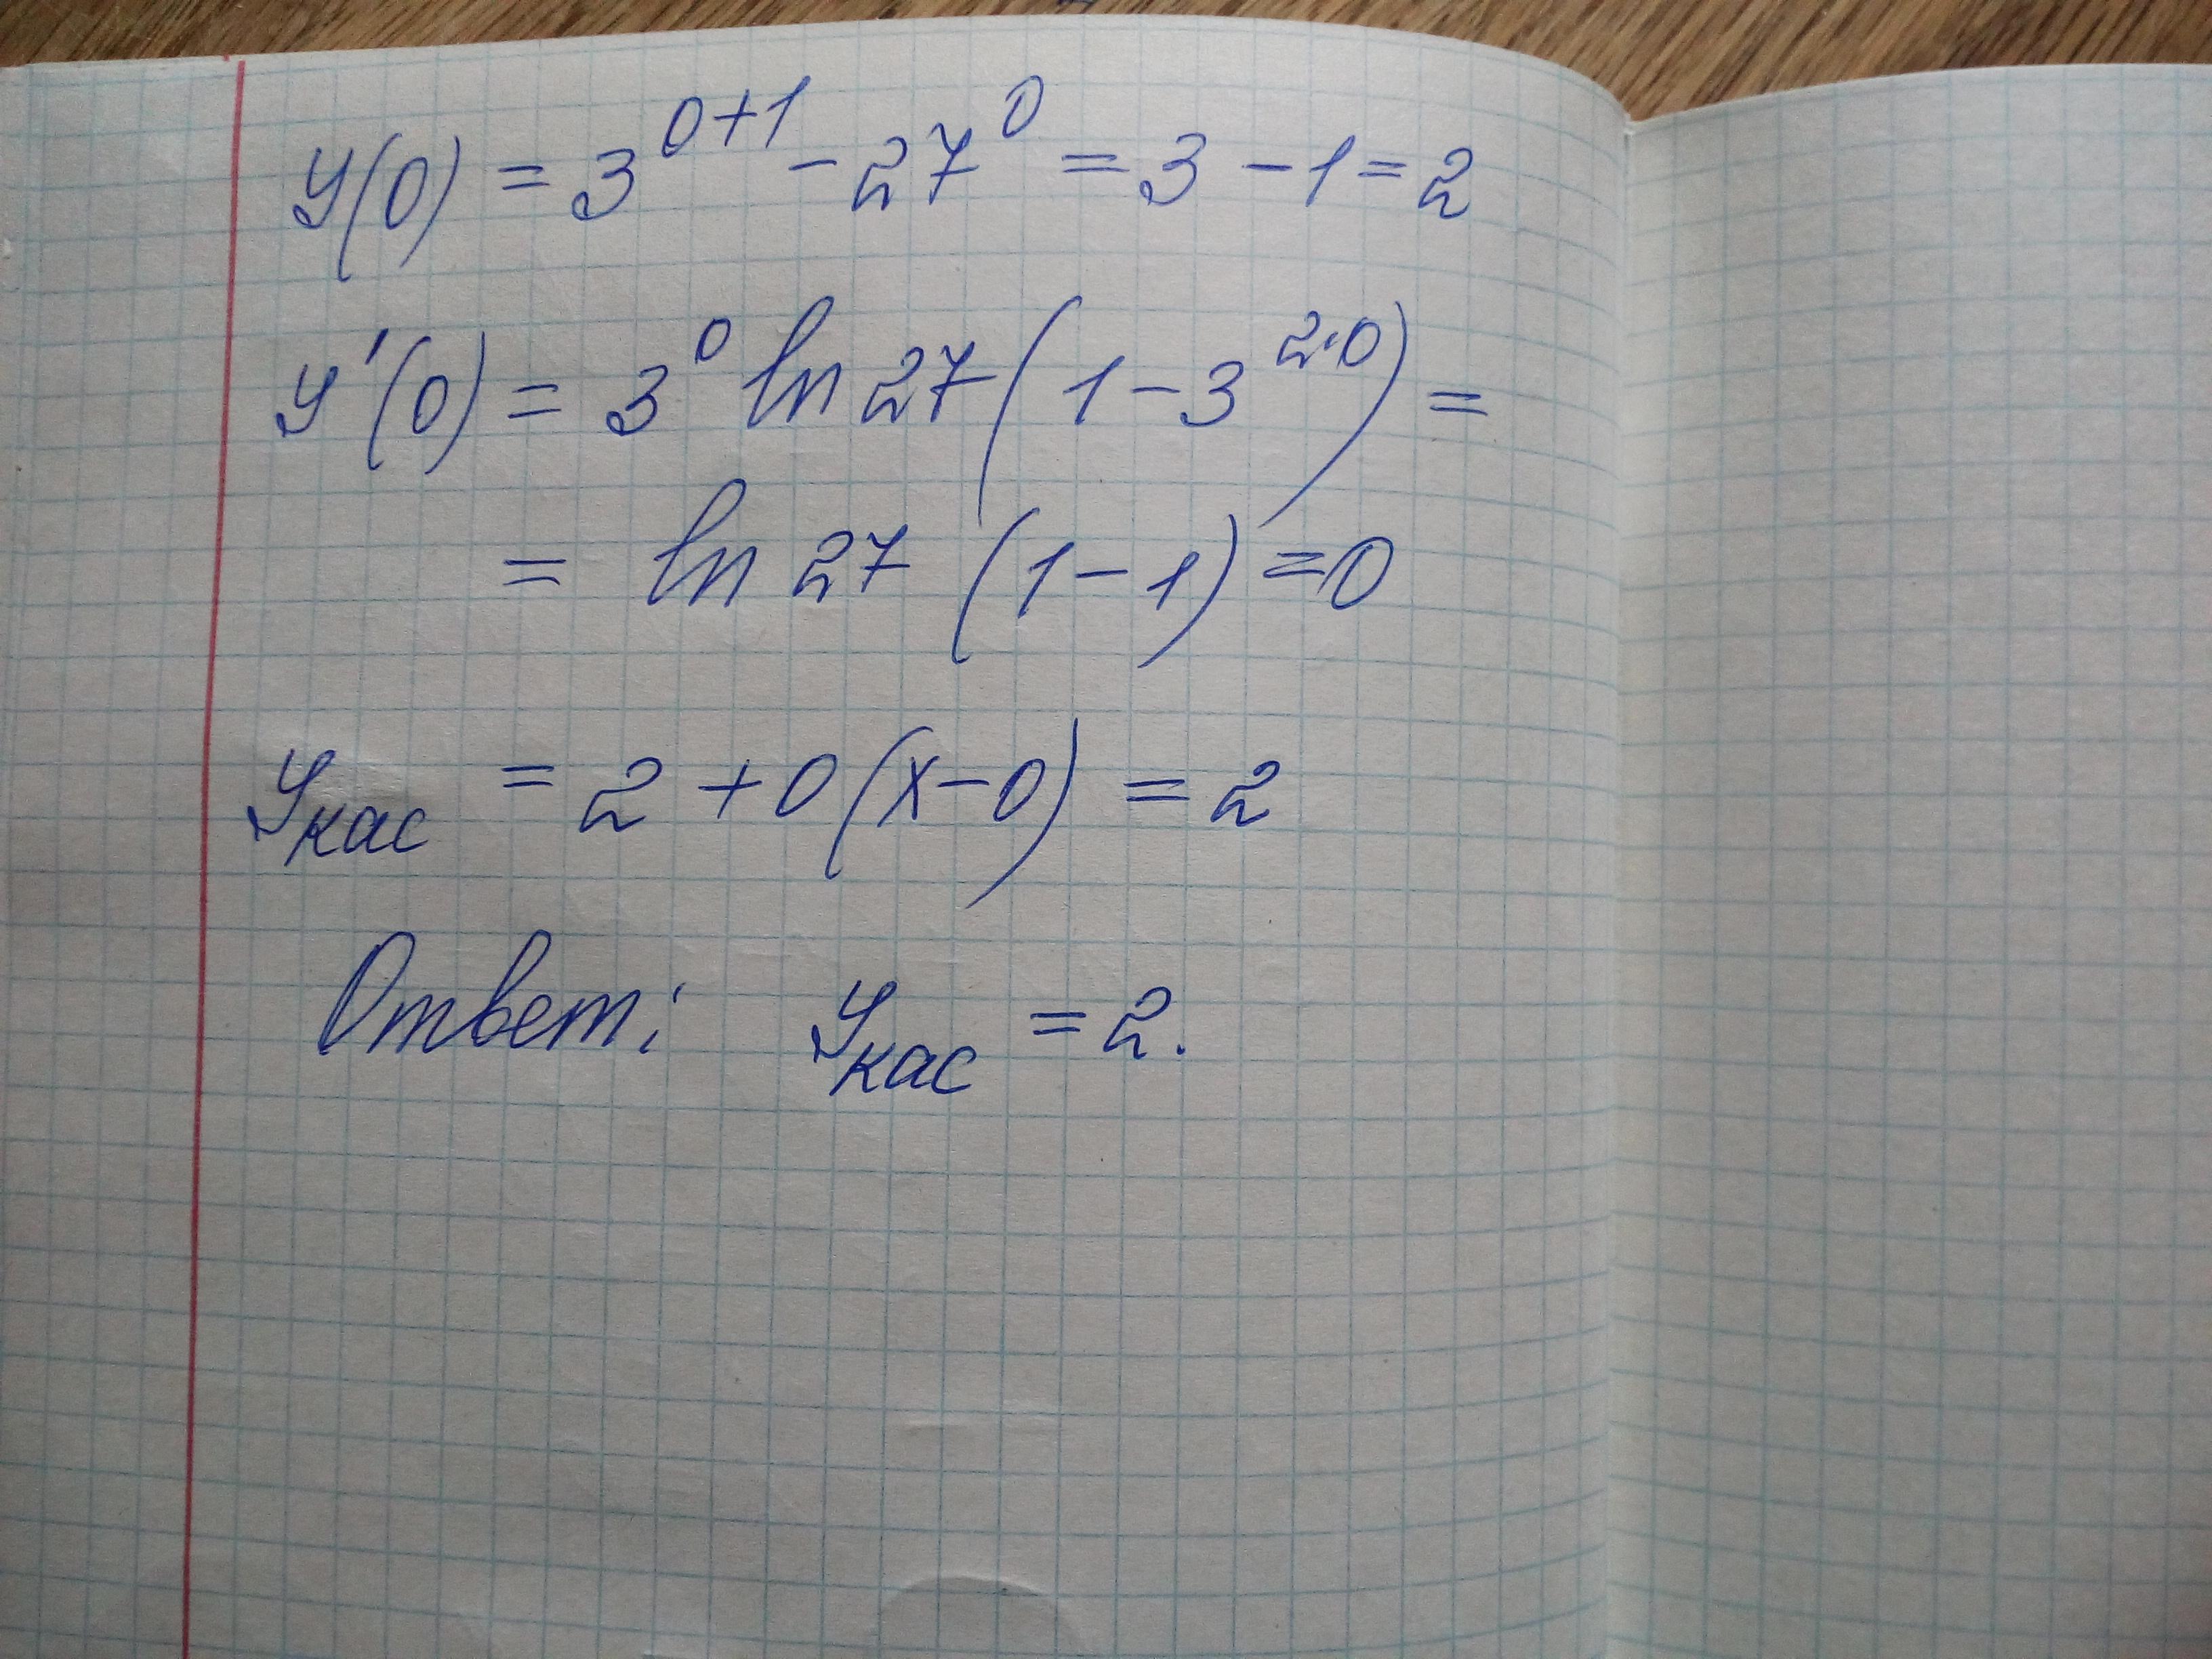 y(0) = 3^{0+1} - 27^0 = 3 - 1 = 2
y'(0) = 3^0 ln 27 (1 - 3^{2·0}) =
= ln 27 (1 - 1) = 0
y_{кас} = 2 + 0(x - 0) = 2
Ответ: y_{кас} = 2.